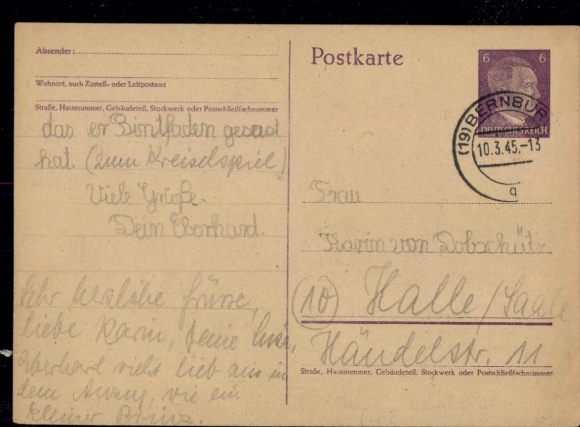 Absender:
Wohnort, auch Zustell- oder Leitpostamt
Straße, Hausnummer, Gebäudeteil, Stockwerk oder Postschließfachnummer
das er Bintfaden gesagt
hat. (Zum Kreiselspiel)
Viele Grüße.
Dein Eberhard.
Sehr herzliche Grüsse,
liebe Karin, Deine
Eberhard sieht lieb aus in
dem Anzug, wie ein
kleiner Prinz.
Postkarte
6 6
DEUTSCHES REICH
(19) BERNBURG
10.3.45.-13
q
Frau
Karin von Dobschütz
(10) Halle/Saale
Händelstr. 11
Straße, Hausnummer, Gebäudeteil, Stockwerk oder Postschließfachnummer